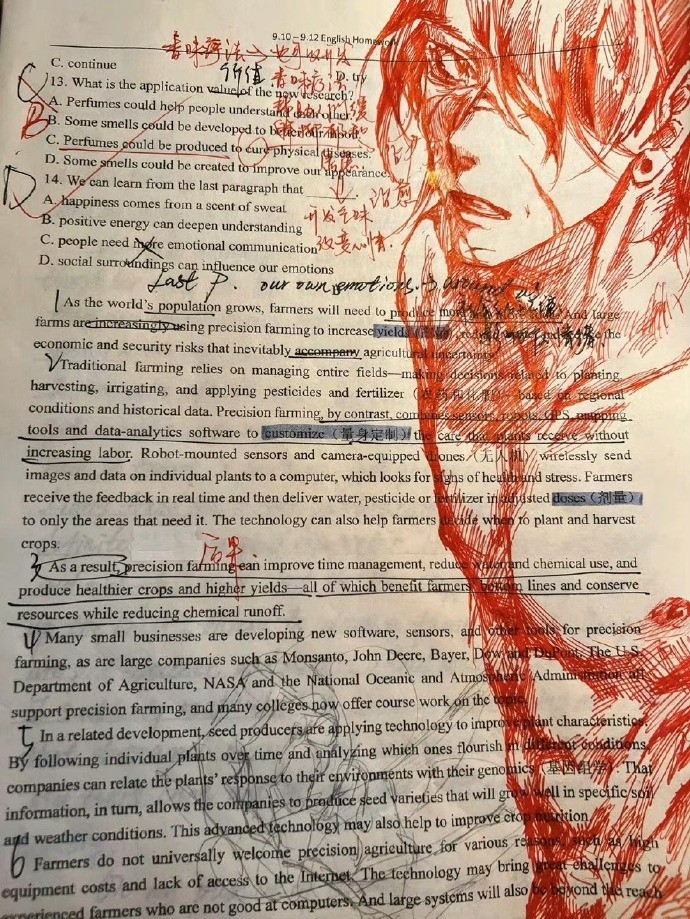 9.10 – 9.12 English Homework
香味疗法→
C. continue
D. try
价值 香味疗法
13. What is the application value of the new research?
A. Perfumes could help people understand each other.
B
B. Some smells could be developed to
C. Perfumes could be produced to cure physical diseases.
D. Some smells could be created to improve our appearance.
D
14. We can learn from the last paragraph that
治愈
A. happiness comes from a scent of sweat
开发气味
B. positive energy can deepen understanding
改变心情.
C. people need more emotional communication
D. social surroundings can influence our emotions
Last P. our own emotions → around us
1 As the world's population grows, farmers will need to produce more And large
farms are increasingly using precision farming to increase yields the
economic and security risks that inevitably accompany agricultural uncertainty.
2 Traditional farming relies on managing entire fields—making decisions related to planting,
harvesting, irrigating, and applying pesticides and fertilizer based on regional
conditions and historical data. Precision farming, by contrast, combines sensors, robots, GPS, mapping
tools and data-analytics software to customize (量身定制) the care that plants receive without
increasing labor. Robot-mounted sensors and camera-equipped drones (无人机) wirelessly send
images and data on individual plants to a computer, which looks for signs of health and stress. Farmers
receive the feedback in real time and then deliver water, pesticide or fertilizer in adjusted doses (剂量)
to only the areas that need it. The technology can also help farmers decide when to plant and harvest
crops.
后果.
3 As a result, precision farming can improve time management, reduce water and chemical use, and
produce healthier crops and higher yields—all of which benefit farmers' bottom lines and conserve
resources while reducing chemical runoff.
4 Many small businesses are developing new software, sensors, and other tools for precision
farming, as are large companies such as Monsanto, John Deere, Bayer, Dow and DuPont. The U.S.
Department of Agriculture, NASA and the National Oceanic and Atmospheric Administration all
support precision farming, and many colleges now offer course work on the topic.
5 In a related development, seed producers are applying technology to improve plant characteristics.
By following individual plants over time and analyzing which ones flourish in different conditions,
companies can relate the plants' response to their environments with their genomics (基因组学). That
information, in turn, allows the companies to produce seed varieties that will grow well in specific soil
and weather conditions. This advanced technology may also help to improve crop nutrition.
6 Farmers do not universally welcome precision agriculture for various reasons, such as high
equipment costs and lack of access to the Internet. The technology may bring great challenges to
experienced farmers who are not good at computers. And large systems will also be beyond the reach